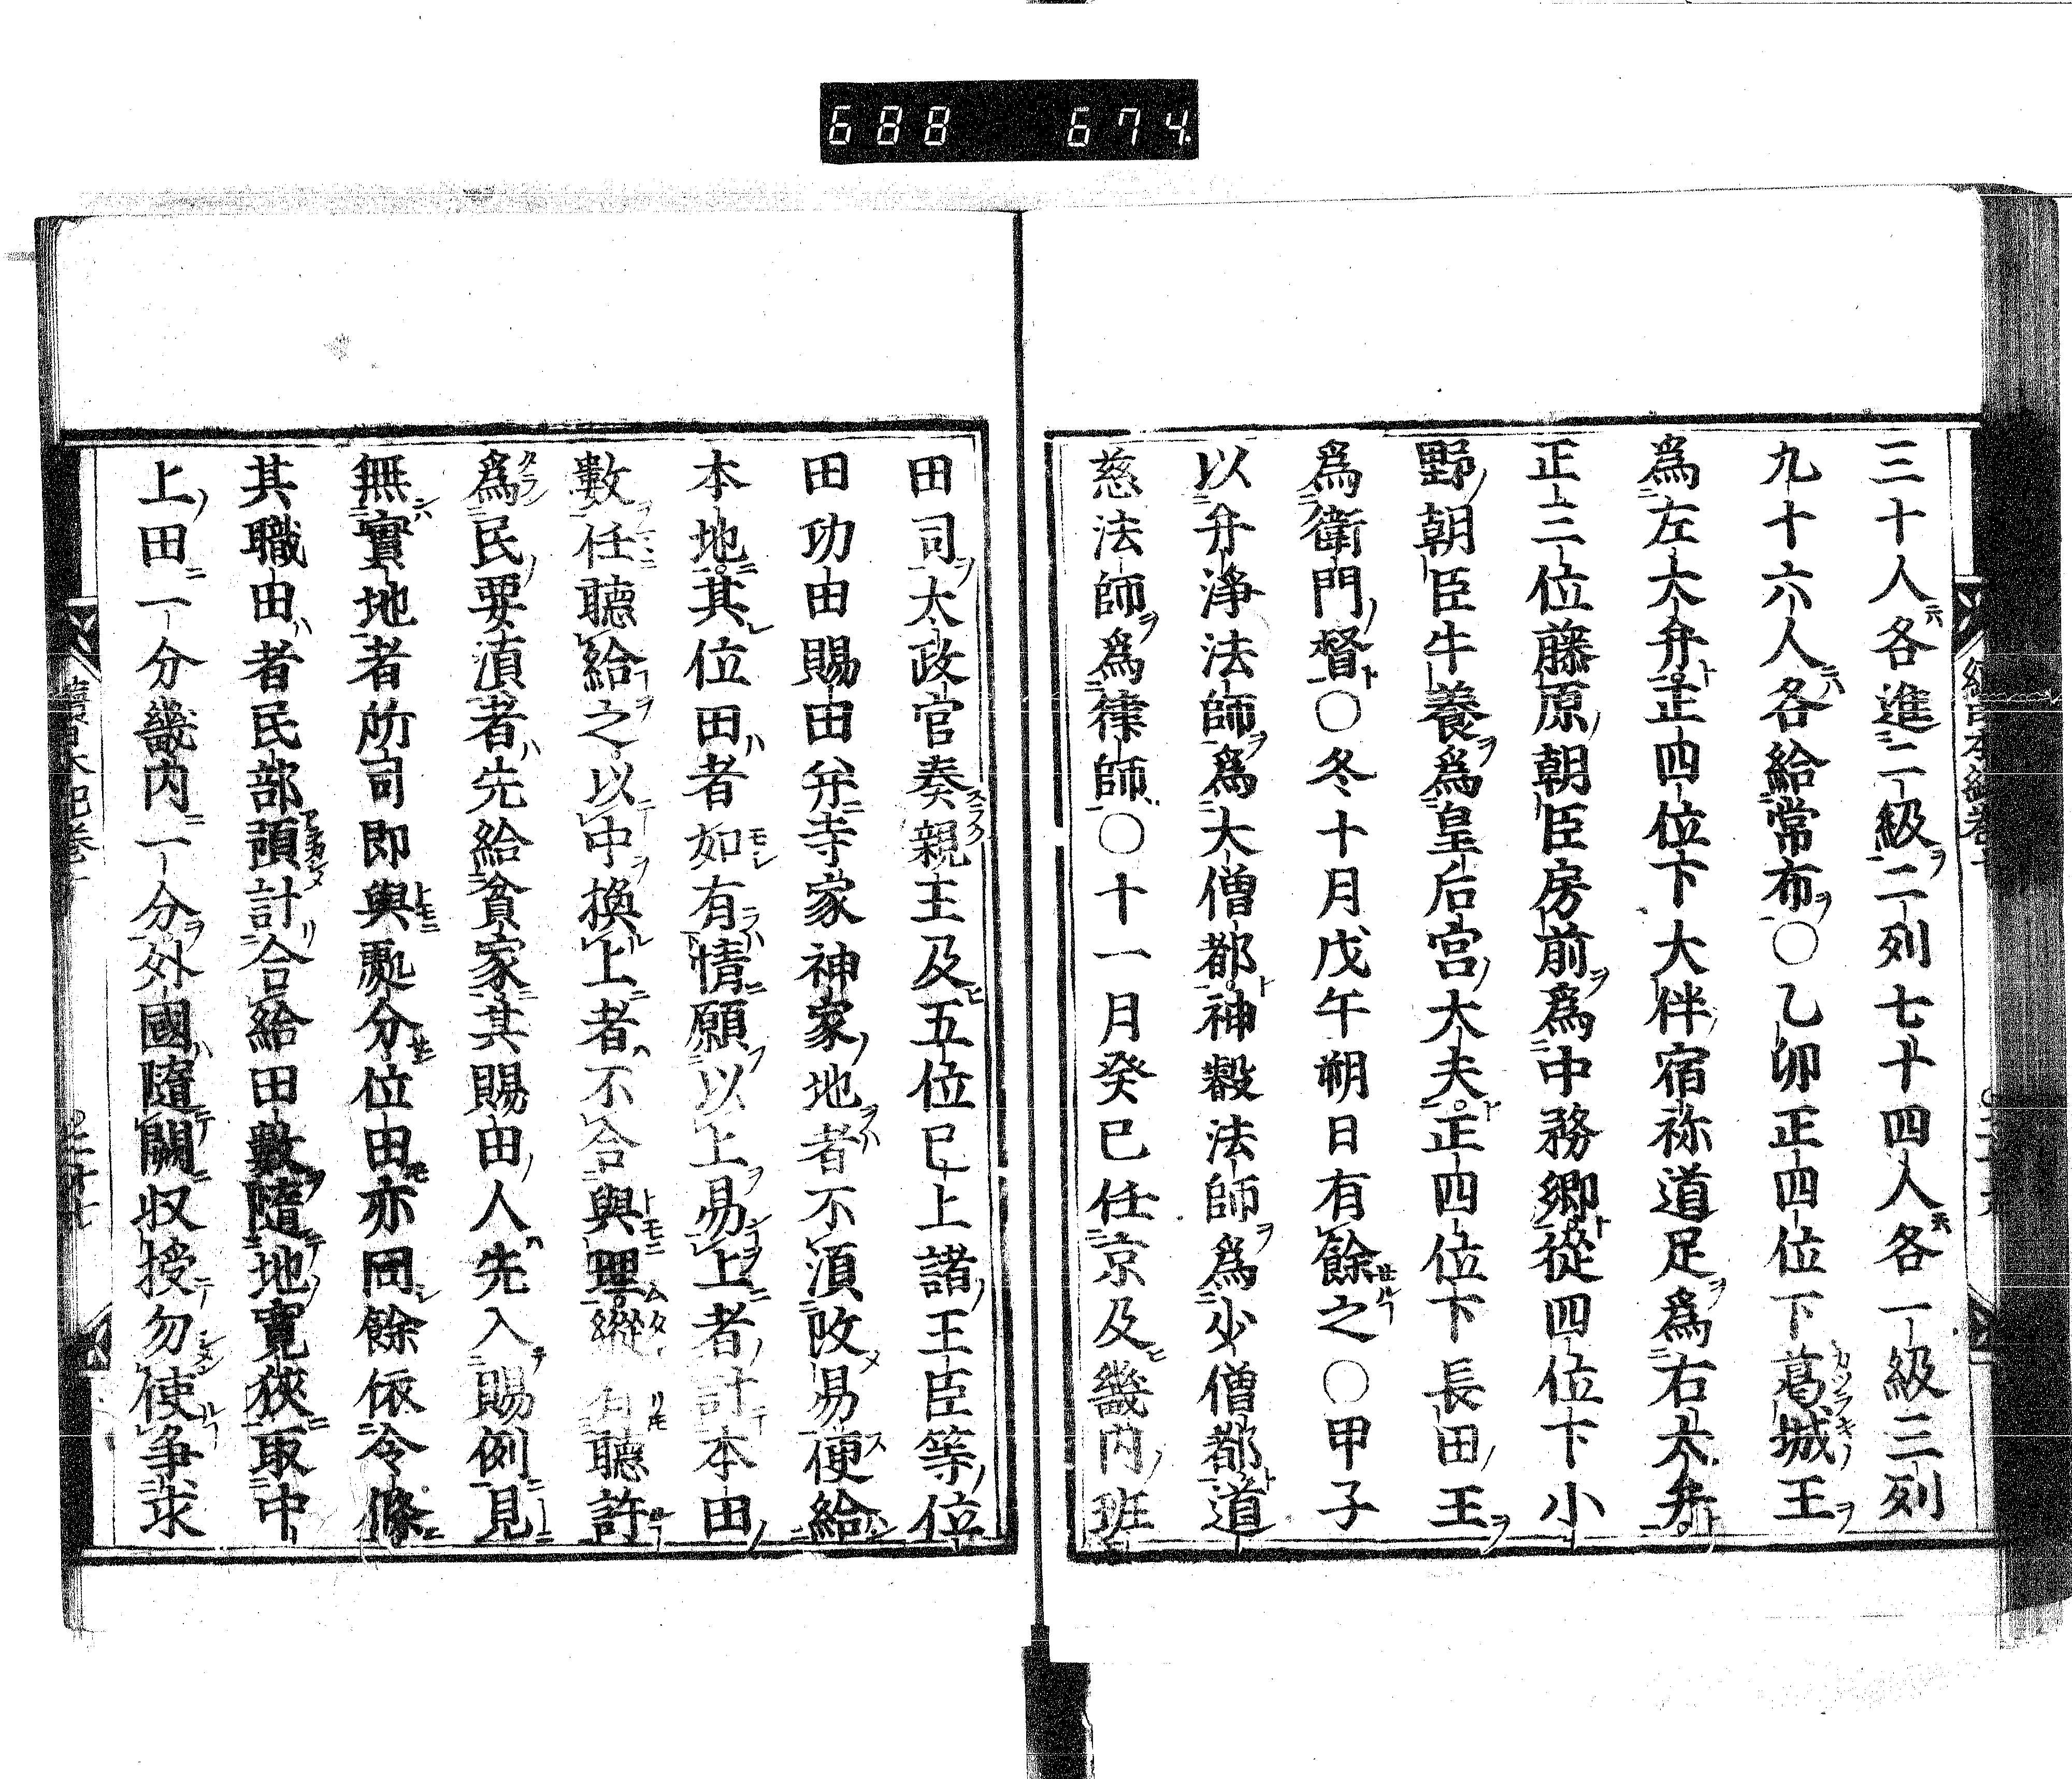 688 674
三十人各進二級二列七十四人各一級三列
九十六人各給常布〇乙卯正四位下葛城王
爲左大弁正四位下大伴宿祢道足爲右大弁
正三位藤原朝臣房前爲中務卿從四位下小
野朝臣牛養爲皇后宮大夫正四位下長田王
爲衛門督〇冬十月戊午朔日有餘之〇甲子
以弁淨法師爲大僧都神叡法師爲少僧都道
慈法師爲律師〇十一月癸巳任京及畿内班
田司太政官奏親王及五位已上諸王臣等位
田功田賜田并寺家神家地者不須改易便給
本地其位田者如有情願以上易上者計本田
數任聽給之以中換上者不合與理縱有聽許
爲民要湏者先給貧家其賜田人先入賜例見
無實地者所司即與處分位田亦同餘依令條
其職田者民部預計合給田數隨地寬狹取中
上田一分畿内一分外國隨闕收授勿使争求